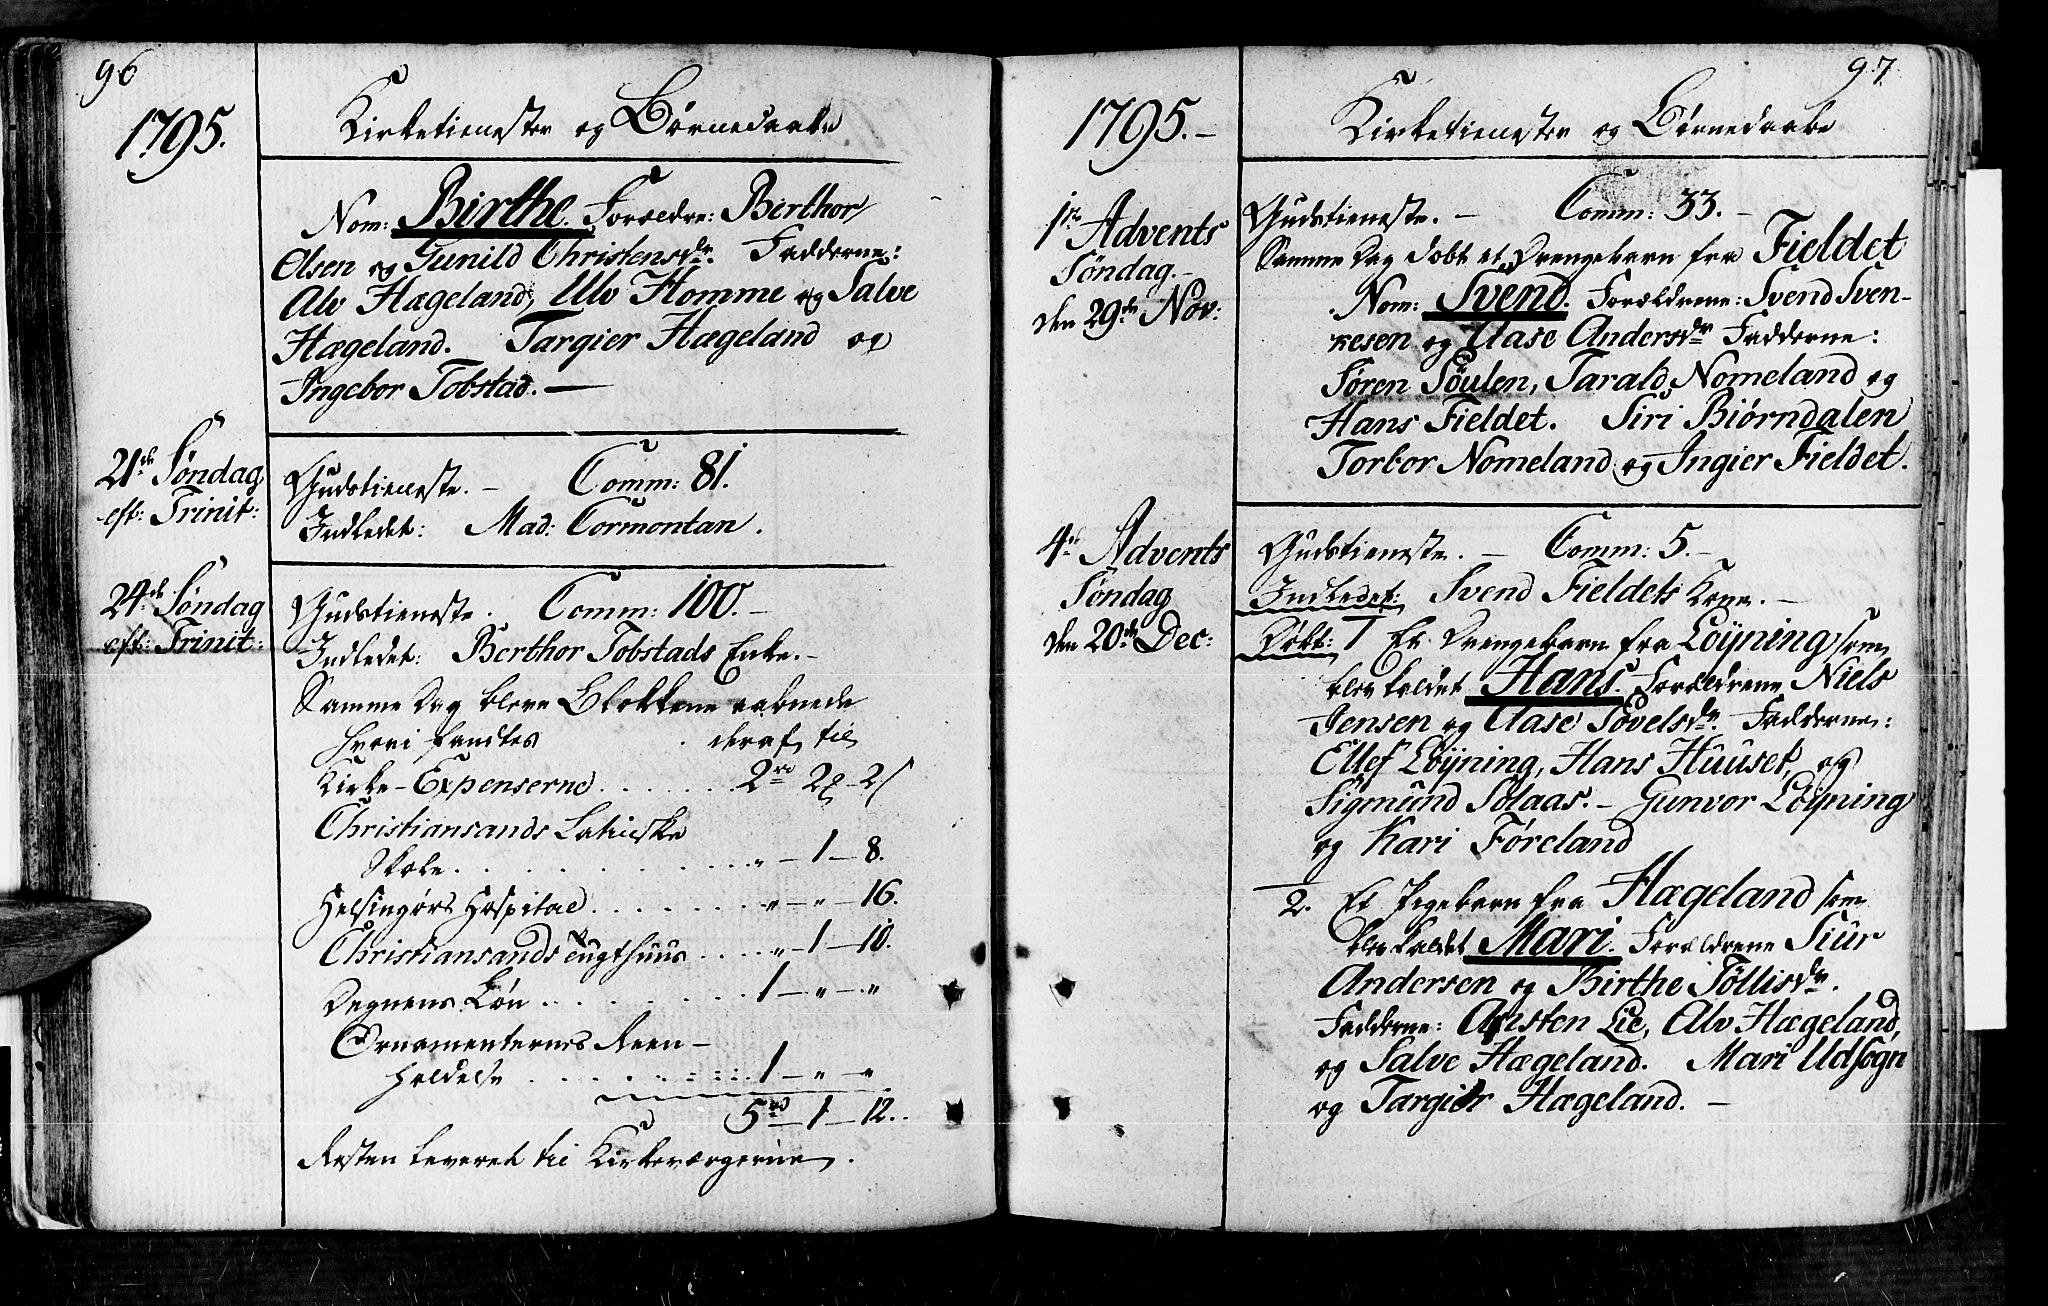 96
1795.
Kirketienester og Børnedaabe
Nom: Birthe. Forældre: Berthor
Olsen og Gunild Christensdr. Fadderne:
Alv Hægeland, Ulv Homme og Salve
Hægeland. Targier Hægeland og
Ingebor Tobstad. —
21de Søndag
eft: Trinit:
Gudstieneste. – Comm: 81.
Indledet: Mad: Cormontan.
24de Søndag
eft: Trinit:
Gudstieneste. Comm: 100. –
Indledet: Berthor Tobstads Enke. –
Samme Dag bleve Blokkene aabnede
hvori fandtes . deraf til
Kirke-Expenserne . . . . . . 2rd 2 – 21
Christiansands Latinske
Skole . . . . . . . . . . „ – 1 – 8.
Helsingørs Hospital . . . . . . „ – „ – 16.
Christiansands Tugthuus . . . . „ – 1 – 10.
Degnens Løn . . . . . . . . 1 – „ – „
Ornamenternes Reen-
holdelse . . . . . . . . . 1 – „ – „
5rd – 1 – 12. .
Resten leveret til Kirkeværgerne.
97
1795. –
Kirketienester og Børnedaabe
1ste Advents
Søndag. –
den 29de Nov:
Gudstieneste. – Comm: 33. –
Samme Dag døbt et Drengebarn fra Fieldet
Nom: Svend. Forældrene: Svend Sven-
kesen og Aase Andersdr Fadderne:
Søren Söulen, Tarald Nomeland og
Hans Fieldet. Siri Biørndalen
Torbor Nomeland og Ingier Fieldet.
4de Advents
Søndag
den 20de Dec:
Gudstieneste. – Comm: 5. –
Indledet: Svend Fieldets Kone. –
Døbt: 1 Et Drengebarn fra Löyning som
blev kaldet Hans. Forældrene Niels
Jensen og Aase Sövelsdr. Fadderne:
Ellef Löyning, Hans Huuset, og
Sigmund Solaas. – Gunvor Löyning
og Kari Føreland
2. Et Pigebarn fra Hægeland som
blev kaldet Mari. Forældrene Siur
Andersen og Birthe Tøllisdr.
Fadderne: Ansten Lie, Alv Hægeland,
og Salve Hægeland. Mari Udsogn
og Targier Hægeland. –